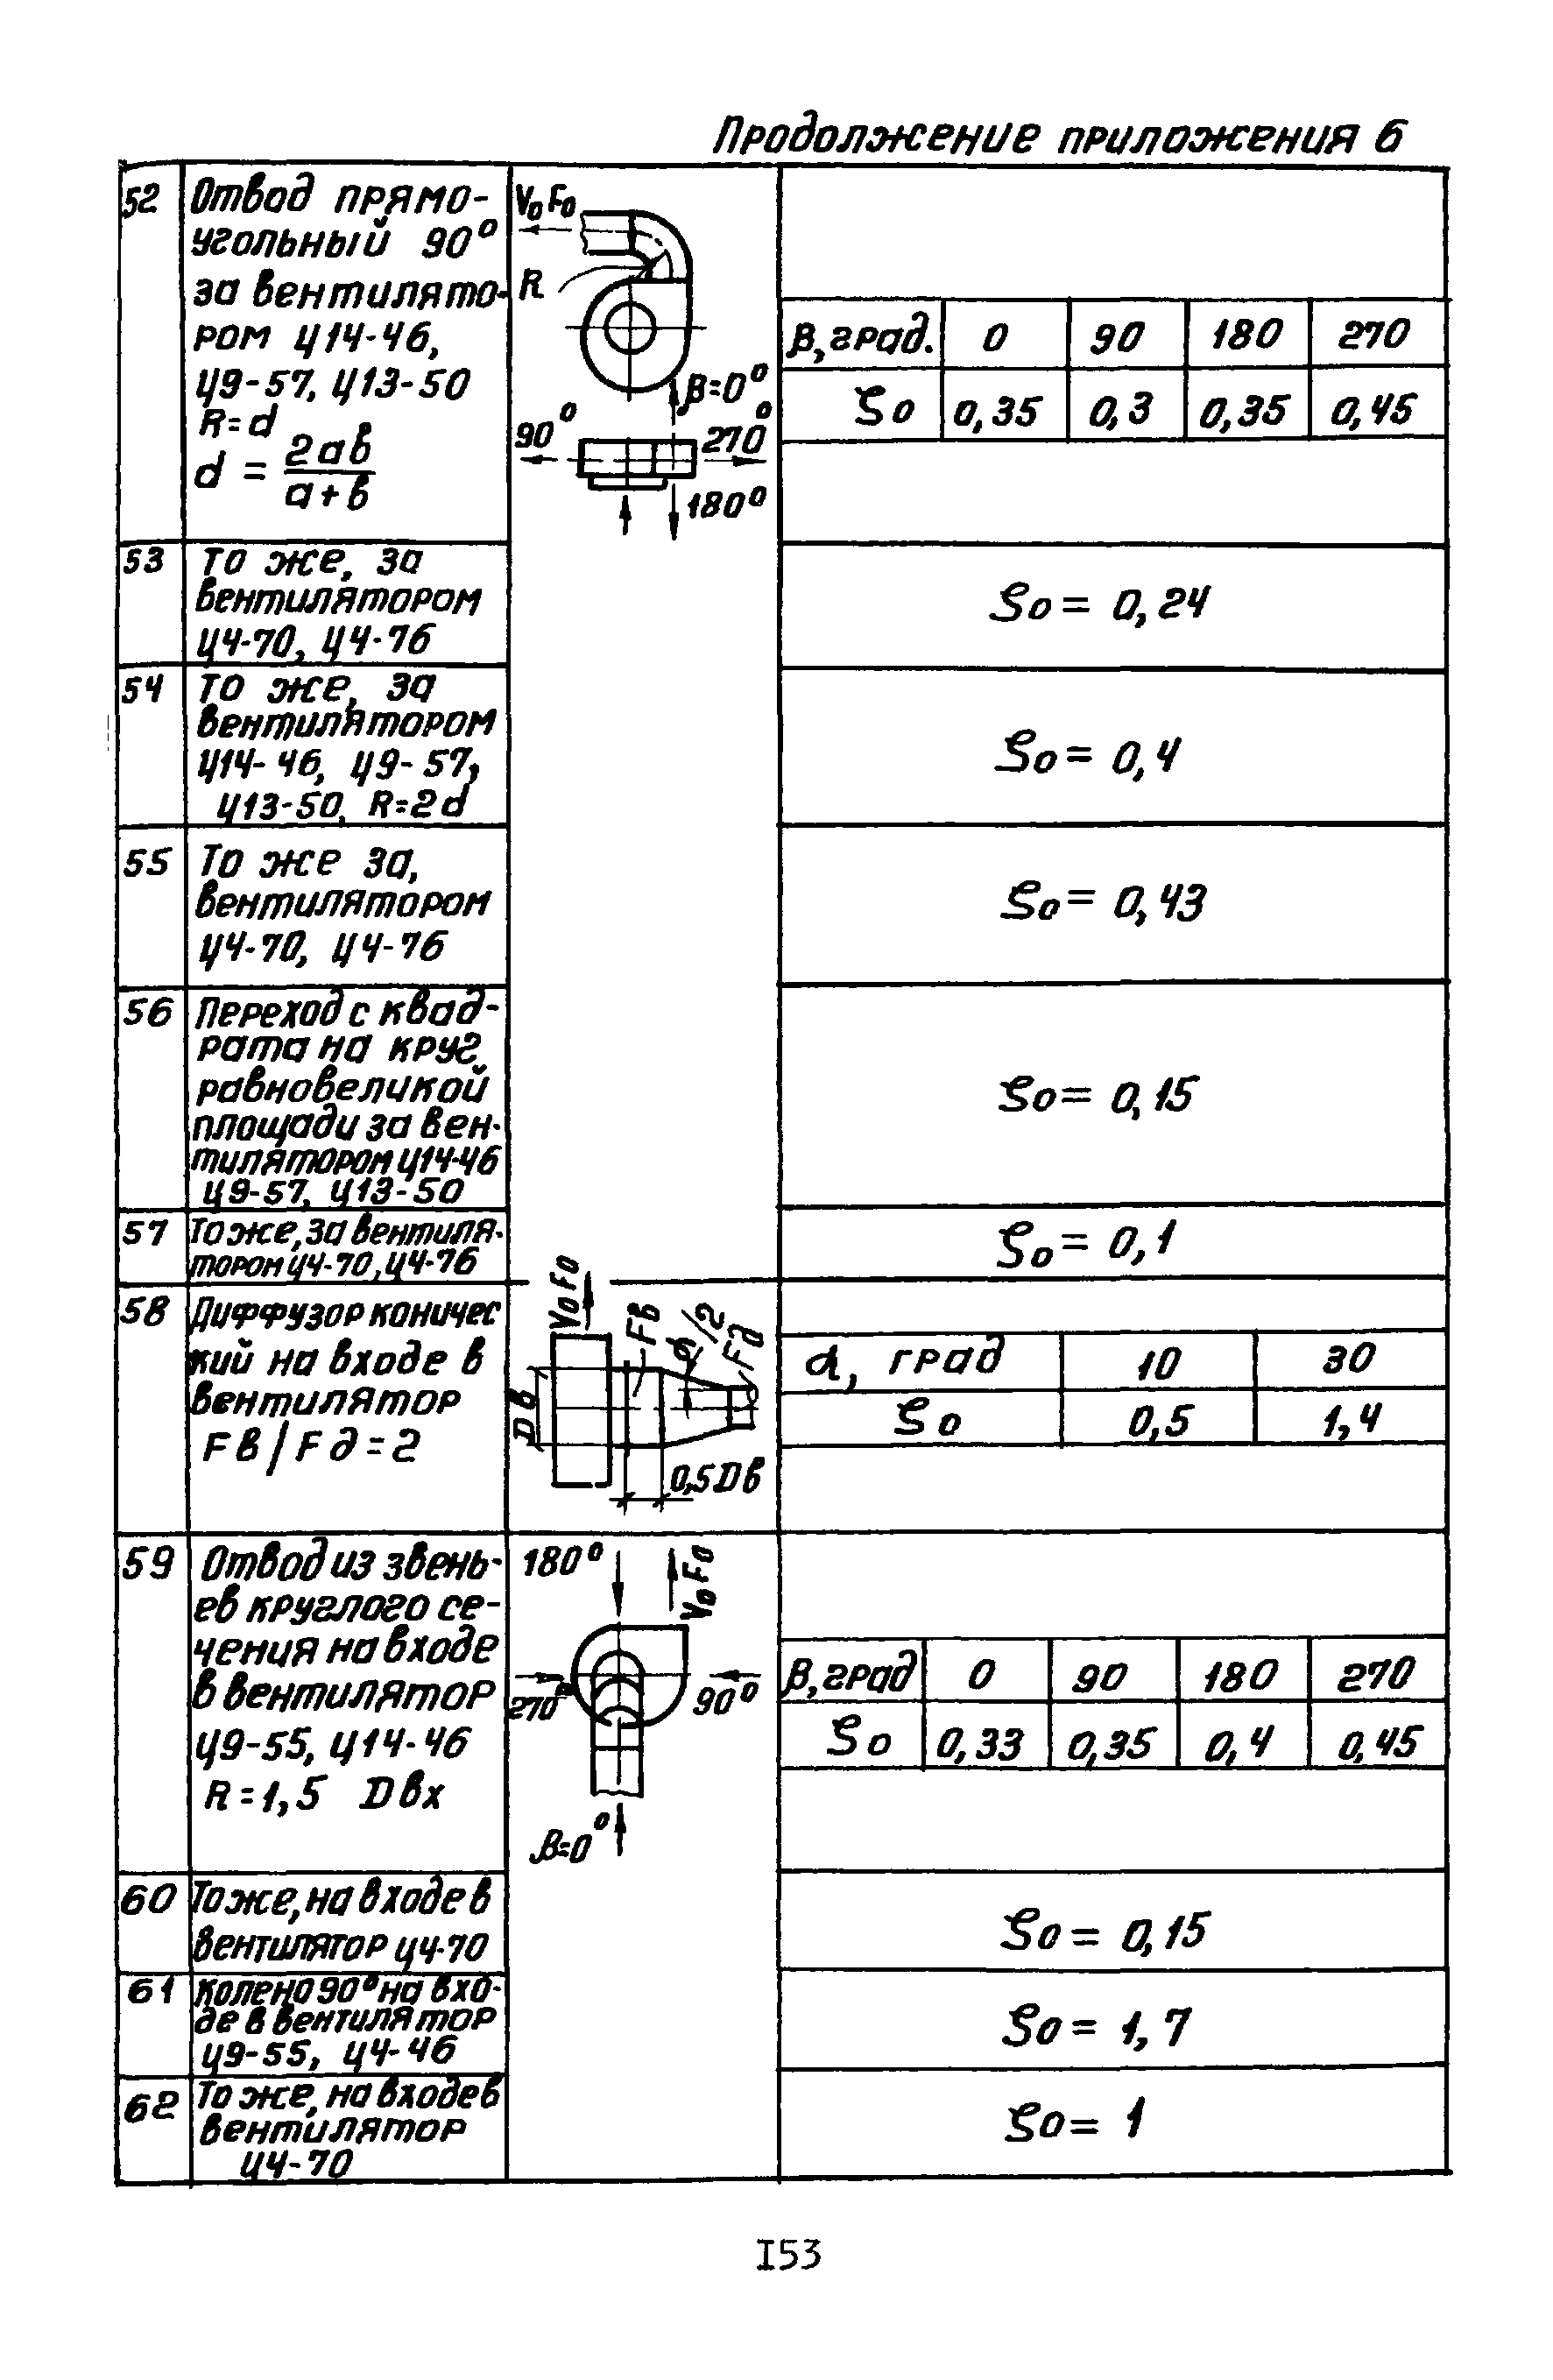 Продолжение приложения 6
52
Отвод прямо-
угольный 90°
за вентилято-
ром Ц14-46,
Ц9-57, Ц13-50
R=d
d = 2ав
а+в
V₀ F₀
R
β=0°
90°
270°
180°
β, град. 0 90 180 270
ζo 0,35 0,3 0,35 0,45
53
То же, за
вентилятором
Ц4-70, Ц4-76
ζo = 0,24
54
То же, за
вентилятором
Ц14-46, Ц9-57,
Ц13-50, R=2d
ζo = 0,4
55
То же за,
вентилятором
Ц4-70, Ц4-76
ζo = 0,43
56
Переход с квад-
рата на круг
равновеликой
площади за вен-
тилятором Ц14-46
Ц9-57, Ц13-50
ζo = 0,15
57
То же, за вентиля-
тором Ц4-70, Ц4-76
ζo = 0,1
58
Диффузор коничес
кий на входе в
вентилятор
Fв/Fд=2
V₀ F₀
Fв
/2
Fд
Dв
0,5Dв
α, град 10 30
ζo 0,5 1,4
59
Отвод из звень-
ев круглого се-
чения на входе
в вентилятор
Ц9-55, Ц14-46
R=1,5 Dвх
180°
V₀ F₀
270°
90°
β=0°
β, град 0 90 180 270
ζo 0,33 0,35 0,4 0,45
60
То же, на входе в
вентилятор Ц4-70
ζo = 0,15
61
Колено 90° на вхо-
де в вентилятор
Ц9-55, Ц4-46
ζo = 1,7
62
То же, на входе в
вентилятор
Ц4-70
ζo = 1
I53